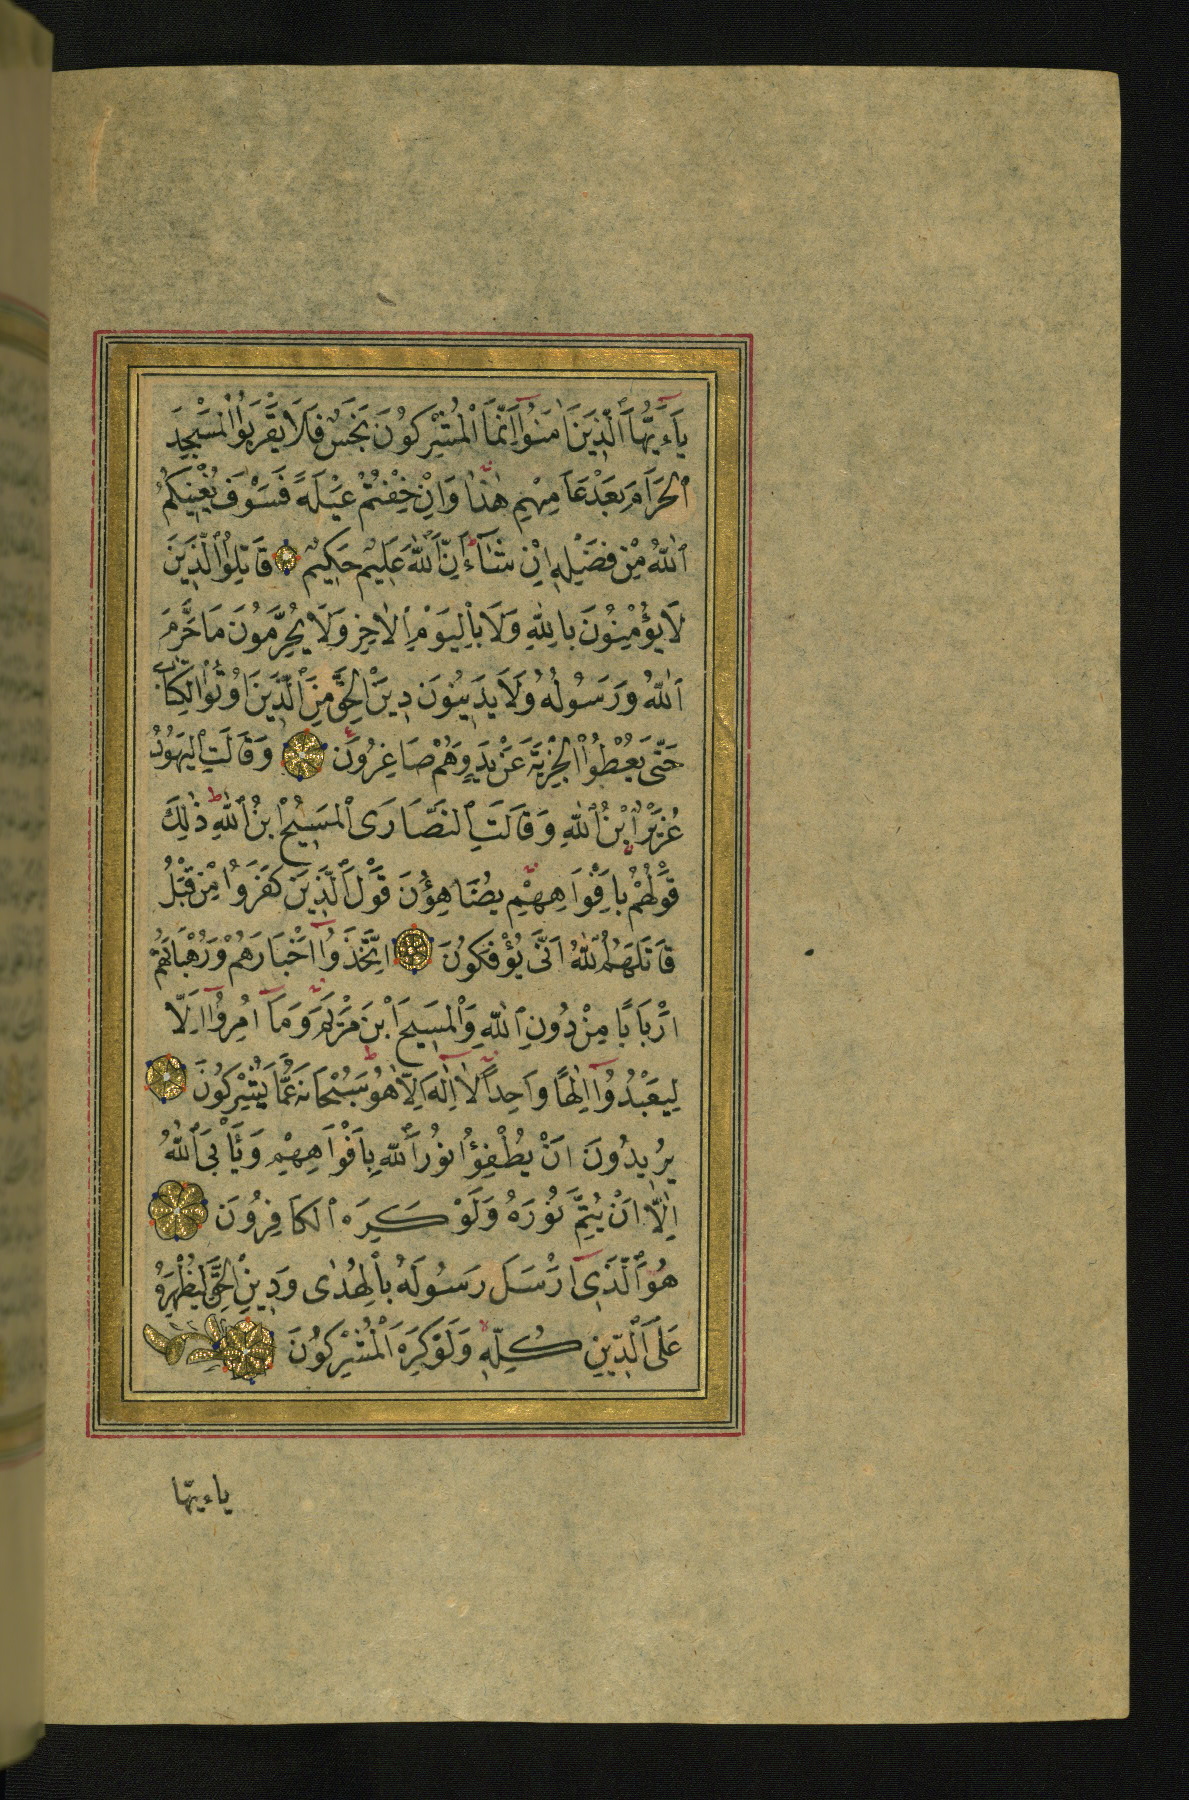 يَاءَيُّهَا ٱلَّذِينَ اٰمَنُوٓا اِنَّمَا ٱلْمُشْرِكُونَ نَجَسٌ فَلَا يَقْرَبُوا ٱلْمَسْجِدَ
ٱلْحَرَامَ بَعْدَ عَامِهِمْ هٰذَا وَاِنْ خِفْتُمْ عَيْلَةً فَسَوْفَ يُغْنِيكُمُ
ٱللّٰهُ مِنْ فَضْلِهِ اِنْ شَآءَ اِنَّ ٱللّٰهَ عَلِيمٌ حَكِيمٌ قَاتِلُوا ٱلَّذِينَ
لَا يُؤْمِنُونَ بِاللّٰهِ وَلَا بِالْيَوْمِ ٱلْاٰخِرِ وَلَا يُحَرِّمُونَ مَا حَرَّمَ
ٱللّٰهُ وَرَسُولُهُ وَلَا يَدِينُونَ دِينَ ٱلْحَقِّ مِنَ ٱلَّذِينَ اُوتُوا ٱلْكِتَابَ
حَتّٰى يُعْطُوا ٱلْجِزْيَةَ عَنْ يَدٍ وَهُمْ صَاغِرُونَ وَقَالَتِ ٱلْيَهُودُ
عُزَيْرٌ ٱبْنُ ٱللّٰهِ وَقَالَتِ ٱلنَّصَارَى ٱلْمَسِيحُ ابْنُ ٱللّٰهِ ذٰلِكَ
قَوْلُهُمْ بِاَفْوَاهِهِمْ يُضَاهِؤُنَ قَوْلَ ٱلَّذِينَ كَفَرُوا مِنْ قَبْلُ
قَاتَلَهُمُ ٱللّٰهُ اَنّٰى يُؤْفَكُونَ اِتَّخَذُوٓا اَحْبَارَهُمْ وَرُهْبَانَهُمْ
اَرْبَابًا مِنْ دُونِ ٱللّٰهِ وَٱلْمَسِيحَ ابْنَ مَرْيَمَ وَمَآ اُمِرُوٓا اِلَّا
لِيَعْبُدُوٓا اِلٰهًا وَاحِدًا لَآ اِلٰهَ اِلَّا هُوَ سُبْحَانَهُ عَمَّا يُشْرِكُونَ
يُرِيدُونَ اَنْ يُطْفِؤُا نُورَ ٱللّٰهِ بِاَفْوَاهِهِمْ وَيَأْبَى ٱللّٰهُ
اِلَّا اَنْ يُتِمَّ نُورَهُ وَلَوْ كَرِهَ ٱلْكَافِرُونَ
هُوَ ٱلَّذِىٓ اَرْسَلَ رَسُولَهُ بِالْهُدٰى وَدِينِ ٱلْحَقِّ لِيُظْهِرَهُ
عَلَى ٱلدِّينِ كُلِّهِ وَلَوْ كَرِهَ ٱلْمُشْرِكُونَ
ياءيّها